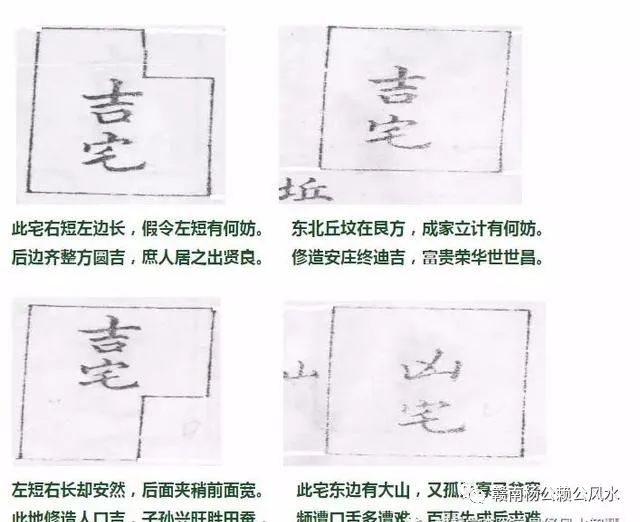 吉宅
吉宅
坵
此宅右短左边长，假令左短有何妨。
后边齐整方圆吉，庶人居之出贤良。
东北丘坟在艮方，成家立计有何妨。
修造安庄终迪吉，富贵荣华世世昌。
吉宅
山
凶宅
左短右长却安然，后面夹稍前面宽。
此地修造人口吉，子孙兴旺胜田蚕。
此宅东边有大山，又孤
频遭口舌多遭难，百事先成后求难
赣南杨公赖公风水